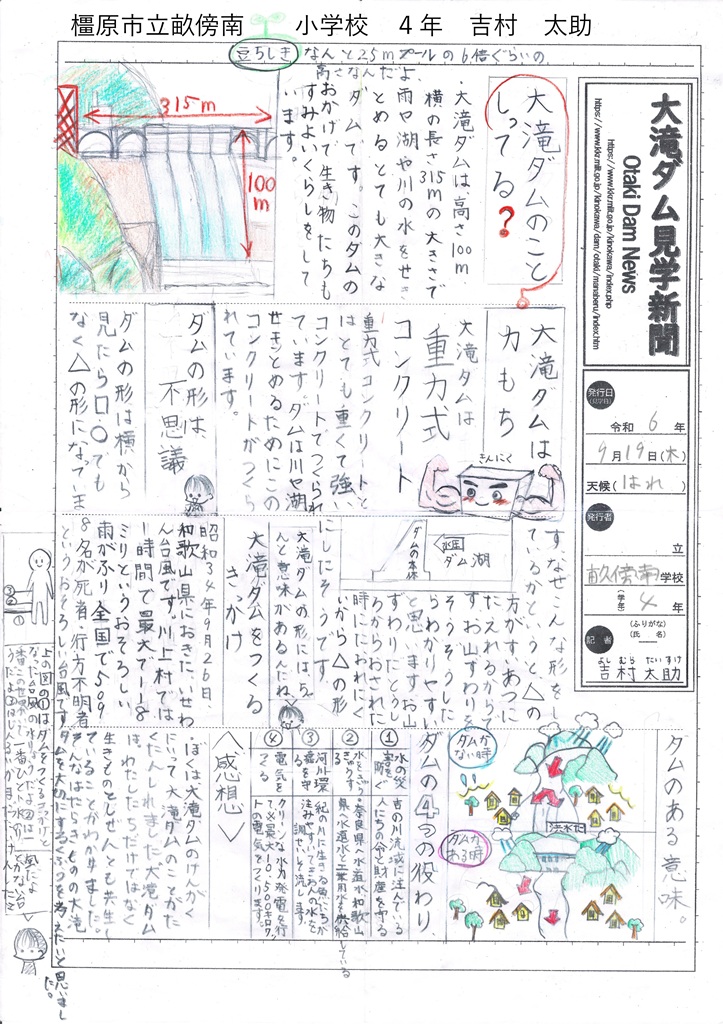 橿原市立畝傍南小学校　４年　吉村　太助
豆ちしき なんと25mプールの6倍ぐらいの
高さなんだよ、
大滝ダム見学新聞
Otaki Dam News
https://www.kkr.mlit.go.jp/kinokawa/index.php
https://www.kkr.mlit.go.jp/kinokawa/dam/otaki/manaberu/index.htm
発行日
(見学日)
令和 6 年
9月19日(木)
天候(はれ)
発行者
立
畝傍南学校
(学年) 4 年
記者
(ふりがな)
(氏名)
よし むら たい すけ
吉村太助
大滝ダムのこと
しってる?
・大滝ダムは、高さ100m
横の長さ315mの大きさで
雨や湖や川の水をせき
とめるとても大きな
ダムです。このダムの
おかげで生き物たちも
すみよいくらしをして
います。
315m
100m
大滝ダムは
力もち
大滝ダムは
重力式
コンクリート
きんにく
重力式コンクリートと
はとても重くて強い
コンクリートでつくられ
ています。ダムは川や湖
せきとめるためにこの
コンクリートがつくら
れています。
ダムの形は、
不思議
ダムの形は横から
見たら□・○でも
なく△の形になっていま
す。なぜこんな形をし
ているかというと、△の
方がすいあつに
たえれるからで
す。お山すわりを
そうぞうした
らわかりやすい
と思います。お山
ずわりだとうし
ろからおされた
時にたおれにく
いから△の形
にしたそうです。
水圧
ダム湖
ダムの本体
大滝ダムの形には、ちゃ
んと意味があるんだね
大滝ダムをつくる
きっかけ
昭和34年9月26日
和歌山県におきた、いせわ
ん台風です。川上村では
1時間で最大で118
ミリというおそろしい
雨がふり全国で509
8名が死者・行方不明者
というおそろしい台風です
ダムのある意味。
ダムがない時
ダムがある時
洪水だ
ダムの4つの役わり
① 水の災害を防ぐ
吉の川流域に注んでいる
人たちの命と財産を守る
②
奈良県へ水道水、和歌山
県へ水道水と工業用水を供給している
③ 河川環
紀の川に生きる魚たちが
注みやすいてきおんの水を
調さいして流します。
④ 電気をつくる
クリーンな水力発電を行
って、最大10,500キロワッ
トの電気をつくります。
<感想>
・ぼくは大滝ダムのけんがく
にいって大滝ダムのことがた
くさんしれました。大滝ダム
は、わたしたちだけではなく
生きものとしぜんとも共生し
ていることがわかりました。
そんなはたらきものの大滝
ダムを大切にするくふうを考えたいと思いまし
た。
上の図の①はダムをつくるきっかけと
なった台風の水